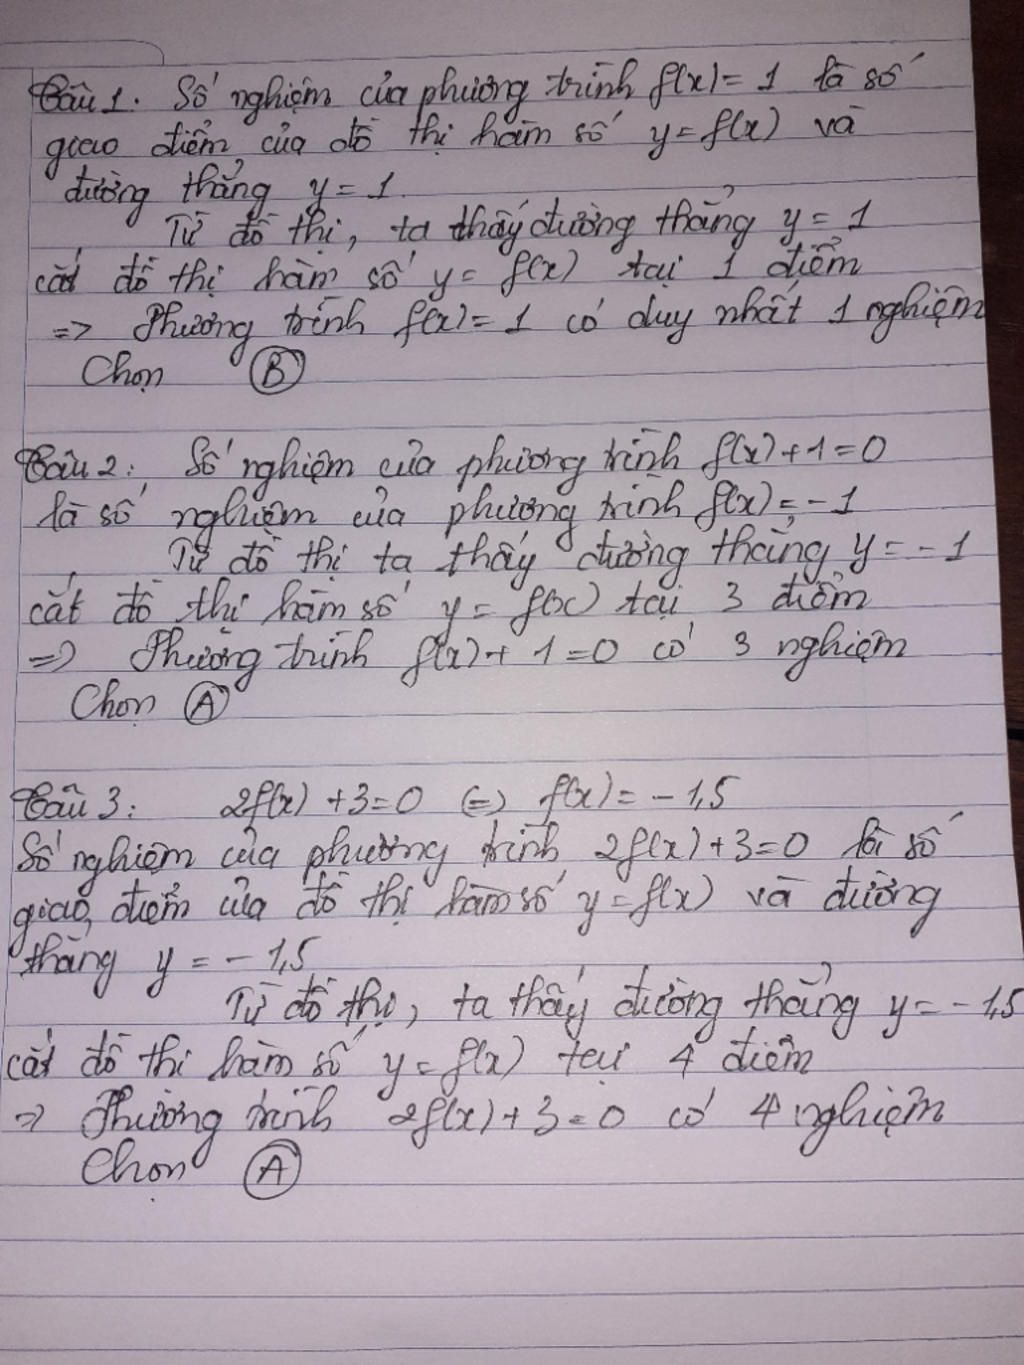 Câu 1. Số nghiệm của phương trình f(x) = 1 là số
giao điểm của đồ thị hàm số y = f(x) và
đường thẳng y = 1.
Từ đồ thị, ta thấy đường thẳng y = 1
cắt đồ thị hàm số y = f(x) tại 1 điểm
=> Phương trình f(x) = 1 có duy nhất 1 nghiệm
Chọn B
Câu 2: Số nghiệm của phương trình f(x) + 1 = 0
là số nghiệm của phương trình f(x) = -1
Từ đồ thị ta thấy đường thẳng y = -1
cắt đồ thị hàm số y = f(x) tại 3 điểm
=> Phương trình f(x) + 1 = 0 có 3 nghiệm
Chọn A
Câu 3: 2f(x) + 3 = 0 (=) f(x) = -1,5
Số nghiệm của phương trình 2f(x) + 3 = 0 là số
giao điểm của đồ thị hàm số y = f(x) và đường
thẳng y = -1,5
Từ đồ thị, ta thấy đường thẳng y = -1,5
cắt đồ thị hàm số y = f(x) tại 4 điểm
=> Phương trình 2f(x) + 3 = 0 có 4 nghiệm
Chọn A